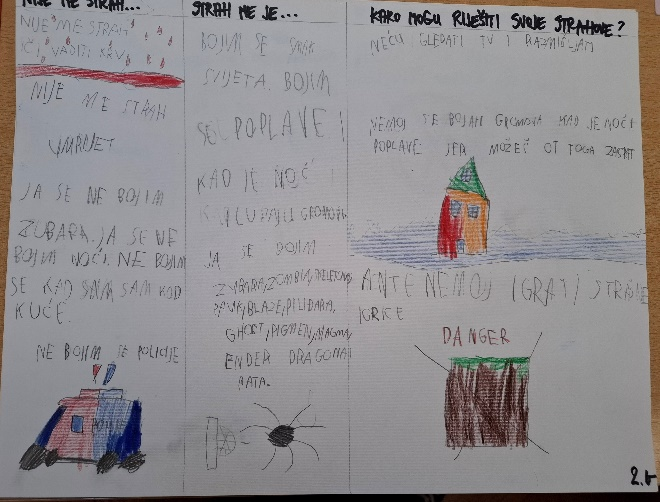 NIJE ME STRAH...
NIJE ME STRAH
IĆI VADITI KRV
NIJE ME STRAH
UMRIJET
JA SE NE BOJIM
ZUBARA. JA SE NE
BOJIM NOĆI. NE BOJIM
SE KAD SAM SAM KOD
KUĆE.
NE BOJIM SE POLICIJE
STRAH ME JE...
BOJIM SE SMAK
SVIJETA. BOJIM
SE POPLAVE I
KAD JE NOĆ
I GROMOVI
JA SE BOJIM
ZUBARA, ZOMBIA, SKELETONA,
BLAZE,
GHOST, PIGMEN, MAGMA,
ENDER DRAGONA I
RATA.
KAKO MOGU RIJEŠITI SVOJE STRAHOVE?
NEĆU GLEDATI TV I RAZMIŠLJATI
NEMOJ SE BOJATI GROMOVA KAD JE NOĆ I
POPLAVE JER MOŽEŠ OT TOGA
ANTE NEMOJ IGRATI STRAŠNE
IGRICE
DANGER
2.b